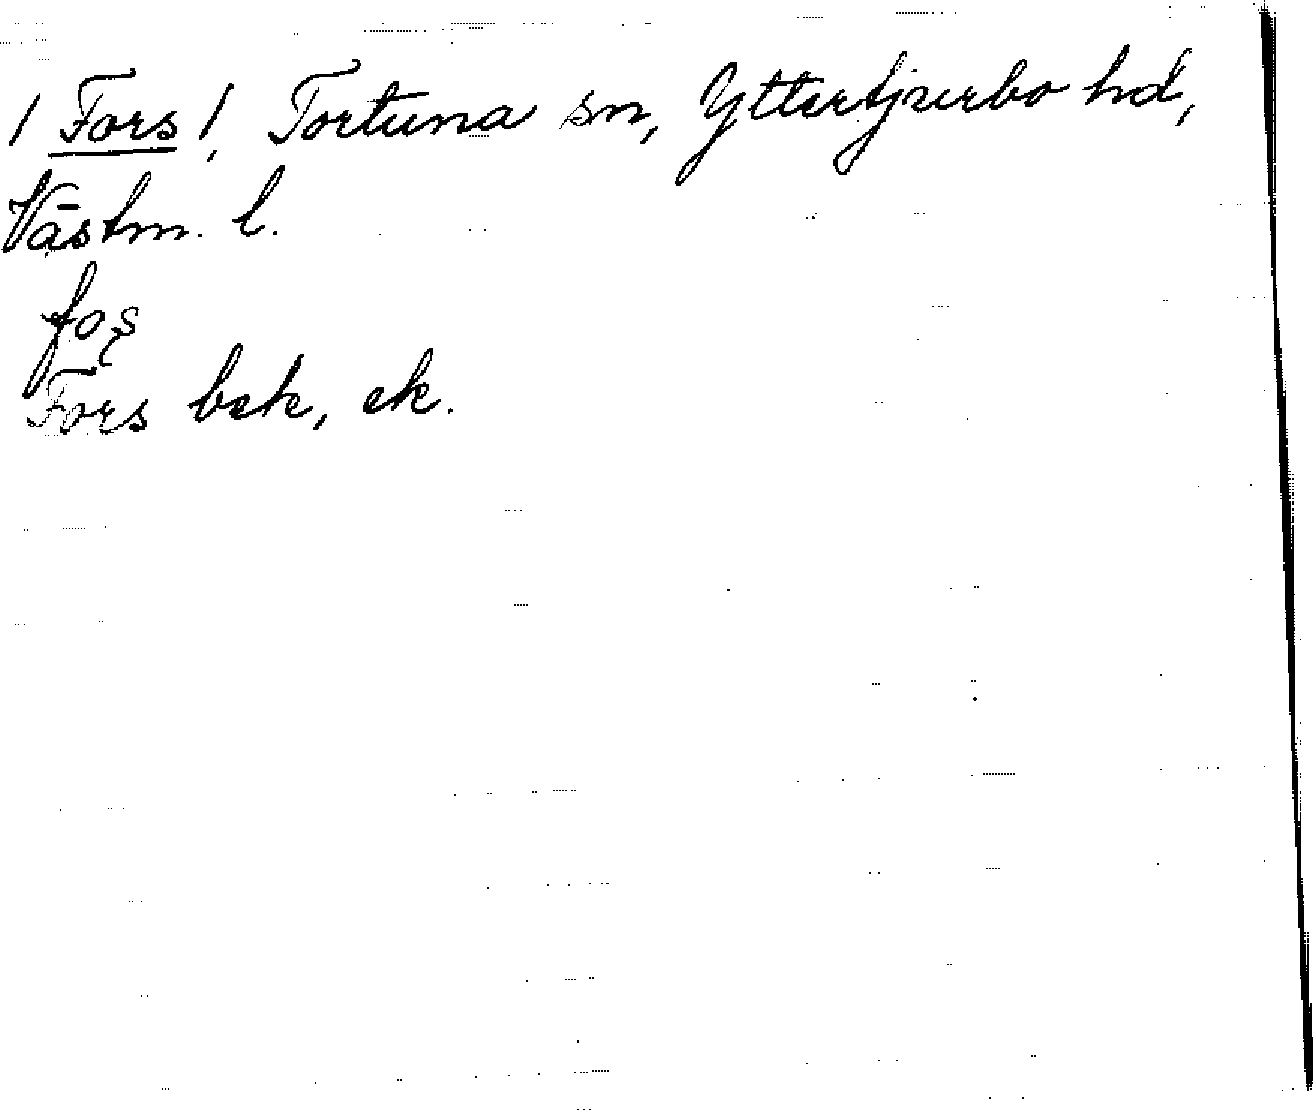 / Fors /, Tortuna sn, Yttertjurbo hd,
Västm. l.
Fors bek, ek.